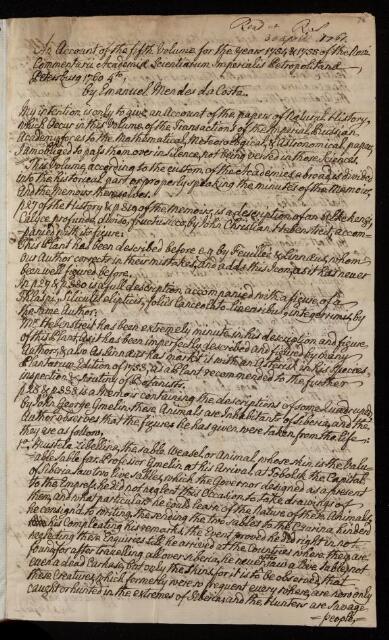 Read at R.S.
30 April 1761.
An Account of the fifth Volume for the years 1754 & 1755 of the Novi
Commentarii Academiæ Scientiarum Imperialis Petropolitanæ
Petersburg 1760 4to;
by Emanuel Mendes da Costa.
My intention is only to give an Account of the papers of Natural History,
which Occur in this Volume of the Transactions of the Imperial Russian
Academy for as to the Mathematical, Meteorological, & Astronomical, papers,
I am obliged to pass them over in silence, not being versed in those Sciences.
This Volume, according to the custom of the Academies abroad is divided
into the historical part or properly speaking the minutes of the Memoirs,
and the Memoirs themselves.
p. 27 of the History & p. of the Memoirs, is a description of an
Calyce profunde diviso, fructu sicco, by John Christian Hebenstreit, accom-
panied with its figure.
This Plant has been described before e.g. by Feuillée & Linnæus, whom
our Author corrects in their mistakes, and adds this Icon, as it has never
been well figured before.
In p. 29 & is a full description accompanied with a figure of a
Thlaspi, Siliculis ellipticis, foliis Lanceolato-Linearibus integerrimis by
the same Author.
Mr. Hebenstreit has been extremely minute in his description and figure
of this Plant, as it has been imperfectly described and figured by many
Authors, & also as Linnæus has mark't it with an Asterisk in his Species
Plantarum Edition of 1753, as a plant recommended to the further
inspection & scrutiny of Botanists.
p. 28 & is a Memoir containing the descriptions of some Quadrupeds
by John George Gmelin, these Animals are Inhabitants of Siberia, and the
Author observes that the figures he has given were taken from the life;
they are as follows.
1o. Mustela Zibellina, the Sable Weasel or Animal whose skin is the Valu-
able Sable fur. Professor Gmelin at his Arrival at Tobolsk the Capital
of Siberia saw two live Sables, which the Governor designed as a present
to the Empress, he did not neglect this Occasion to take drawings of
them, and what particulars he could learn of the Nature of these Animals,
he consign'd to writing, the sending the two Sables to the Czarina hinder'd
his Compleating his remarks, the Event proved he did right in not
neglecting these Enquiries till he arrived at the Countries where they are
found, for after travelling all over Siberia, he never saw a live Sable, not
even a dead Carkase, but only the skins, for it is to be observed, that
these Creatures which formerly were so frequent every where, are now only
caught or hunted in the extremes of Siberia, and the Hunters are Savage
-people,-